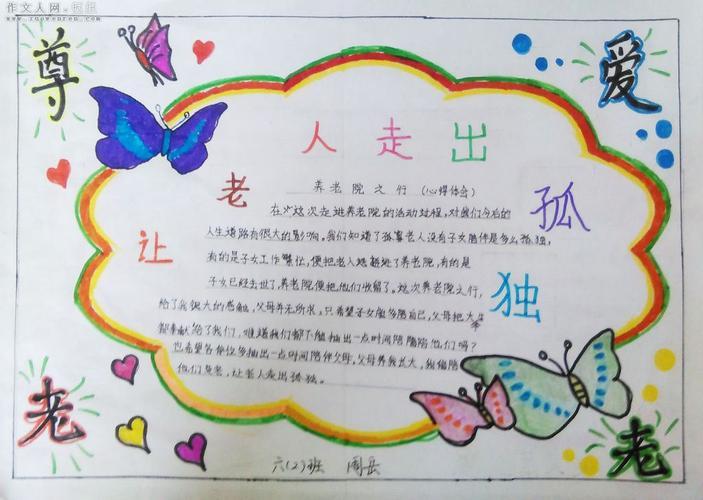 作文人网
www.zuowenren.com
尊
爱
让老人走出孤独
养老院之行(心得体会)
在这次走进养老院的活动过程,对我们今后的
人生道路有很大的影响,我们知道了孤寡老人没有子女陪伴是多么孤独,
有的是子女工作繁忙,便把老人进了养老院,有的是
子女已经去世了,养老院便把他们收留了。这次养老院之行,
给了我很大的感触,父母并无所求,只希望子女能多陪自己,父母把大半
都奉献给了我们,难道我们都不能抽出一点时间陪陪他们吗?
也希望各位多抽出一点时间陪伴父母,父母养我长大,我陪
他们变老,让老人走出孤独。
老
老
六(2)班 周岳